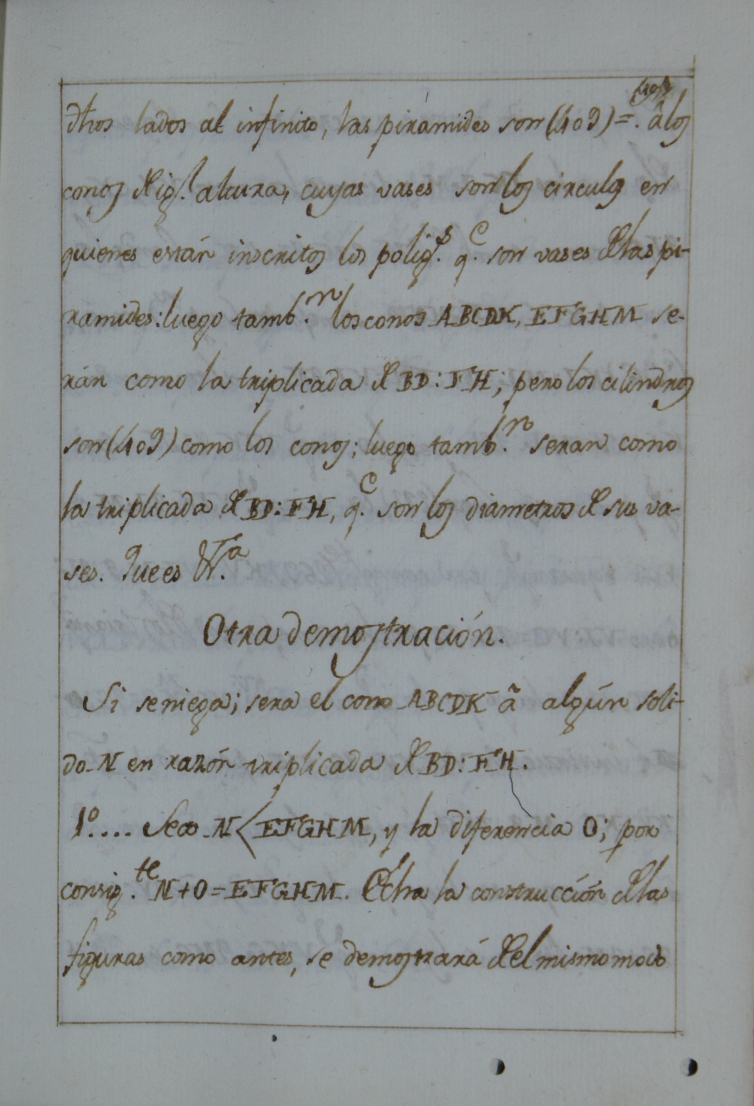 dhos lados al infinito, las pirámides son (409) =. â los
conos de ig.l altura, cuyas vases son los circulos en
quienes están inscritos los polig.s q.e son vases de las pi-
ramides: luego tamb.n los conos ABCDK, EFGHM se-
rán como la triplicada de BD:FH; pero los cilindros
son (409) como los conos; luego tamb.n seran como
la triplicada de BD:FH, q.e son los diametros de sus va-
ses. Que es &.a
Otra demostración.
Si se niega; sera el cono ABCDK â algún soli-
do N en razón triplicada de BD:FH.
1.º.... Sea N < EFGHM, y la diferencia O; por
consig.te N+O=EFGHM. Hecha la construcción de las
figuras como antes, se demostrará del mismo modo